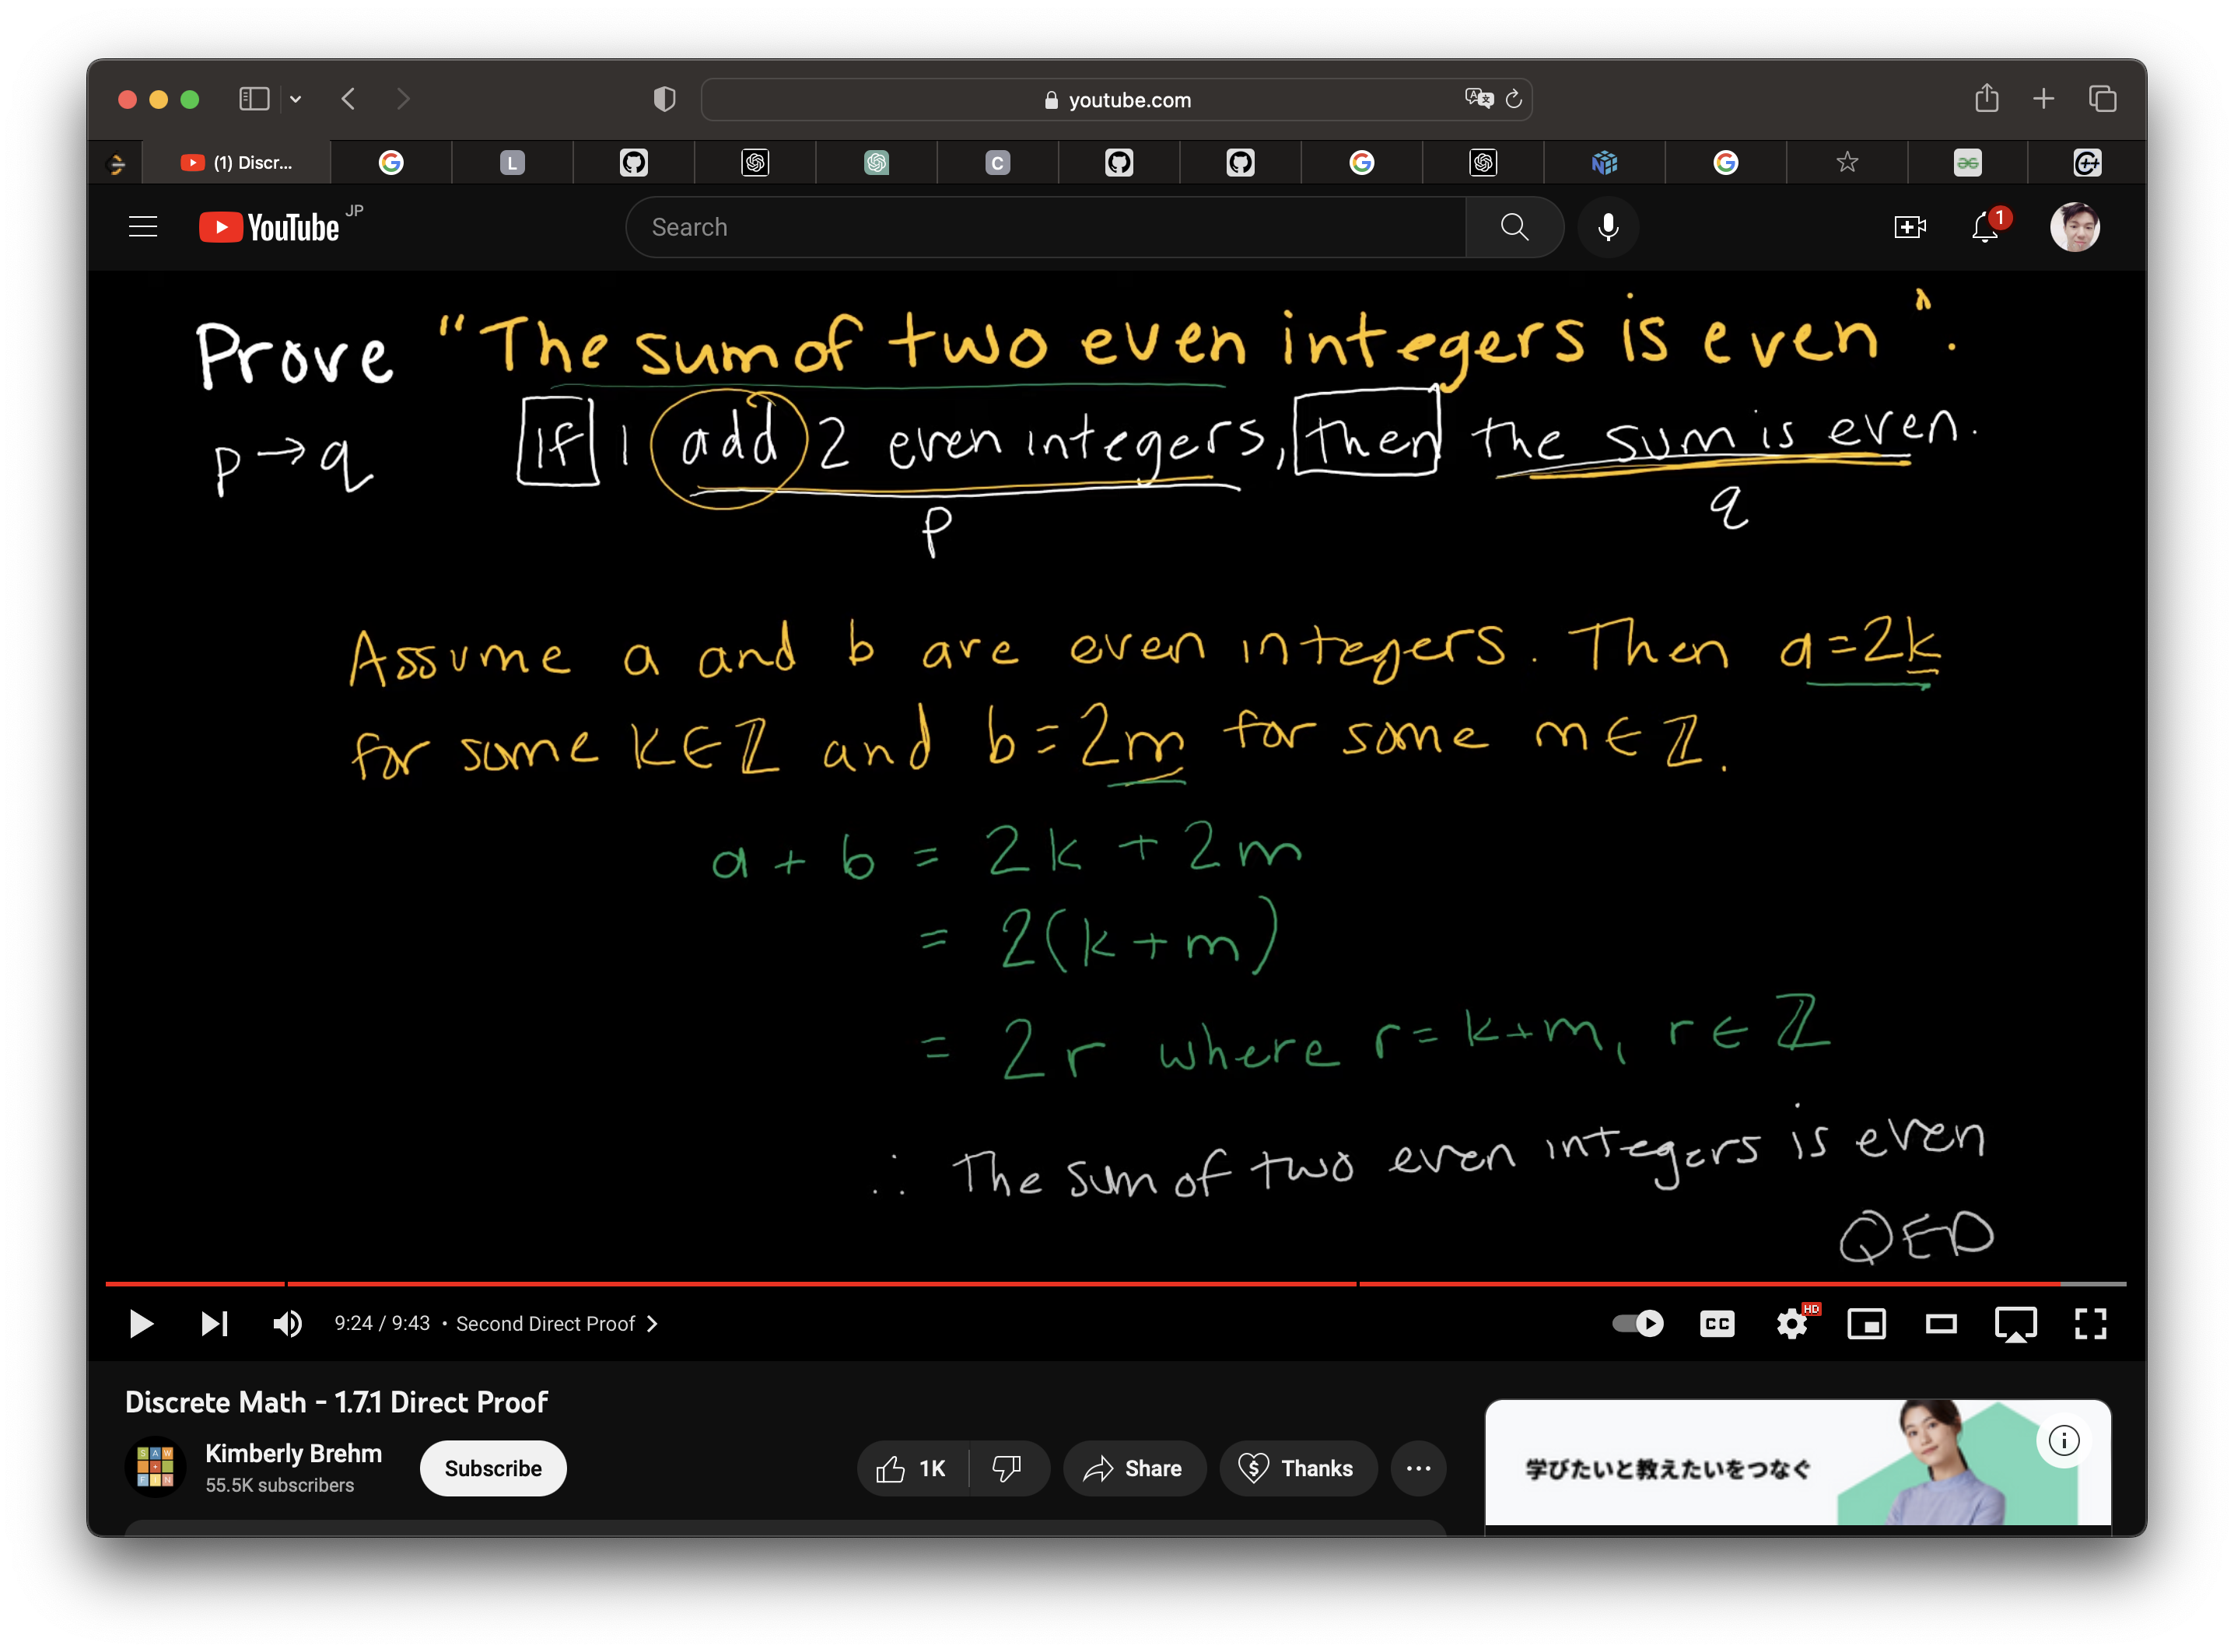 youtube.com
(1) Discr...
L
C
YouTube JP
Search
1
Prove "The sum of two even integers is even".
p → q If I add 2 even integers, then the sum is even.
p q
Assume a and b are even integers. Then a = 2k
for some k ∈ ℤ and b = 2m for some m ∈ ℤ.
a + b = 2k + 2m
= 2(k + m)
= 2r where r = k + m, r ∈ ℤ
∴ The sum of two even integers is even
QED
9:24 / 9:43 • Second Direct Proof
CC
HD
Discrete Math - 1.7.1 Direct Proof
Kimberly Brehm
55.5K subscribers
Subscribe
1K
Share
Thanks
学びたいと教えたいをつなぐ